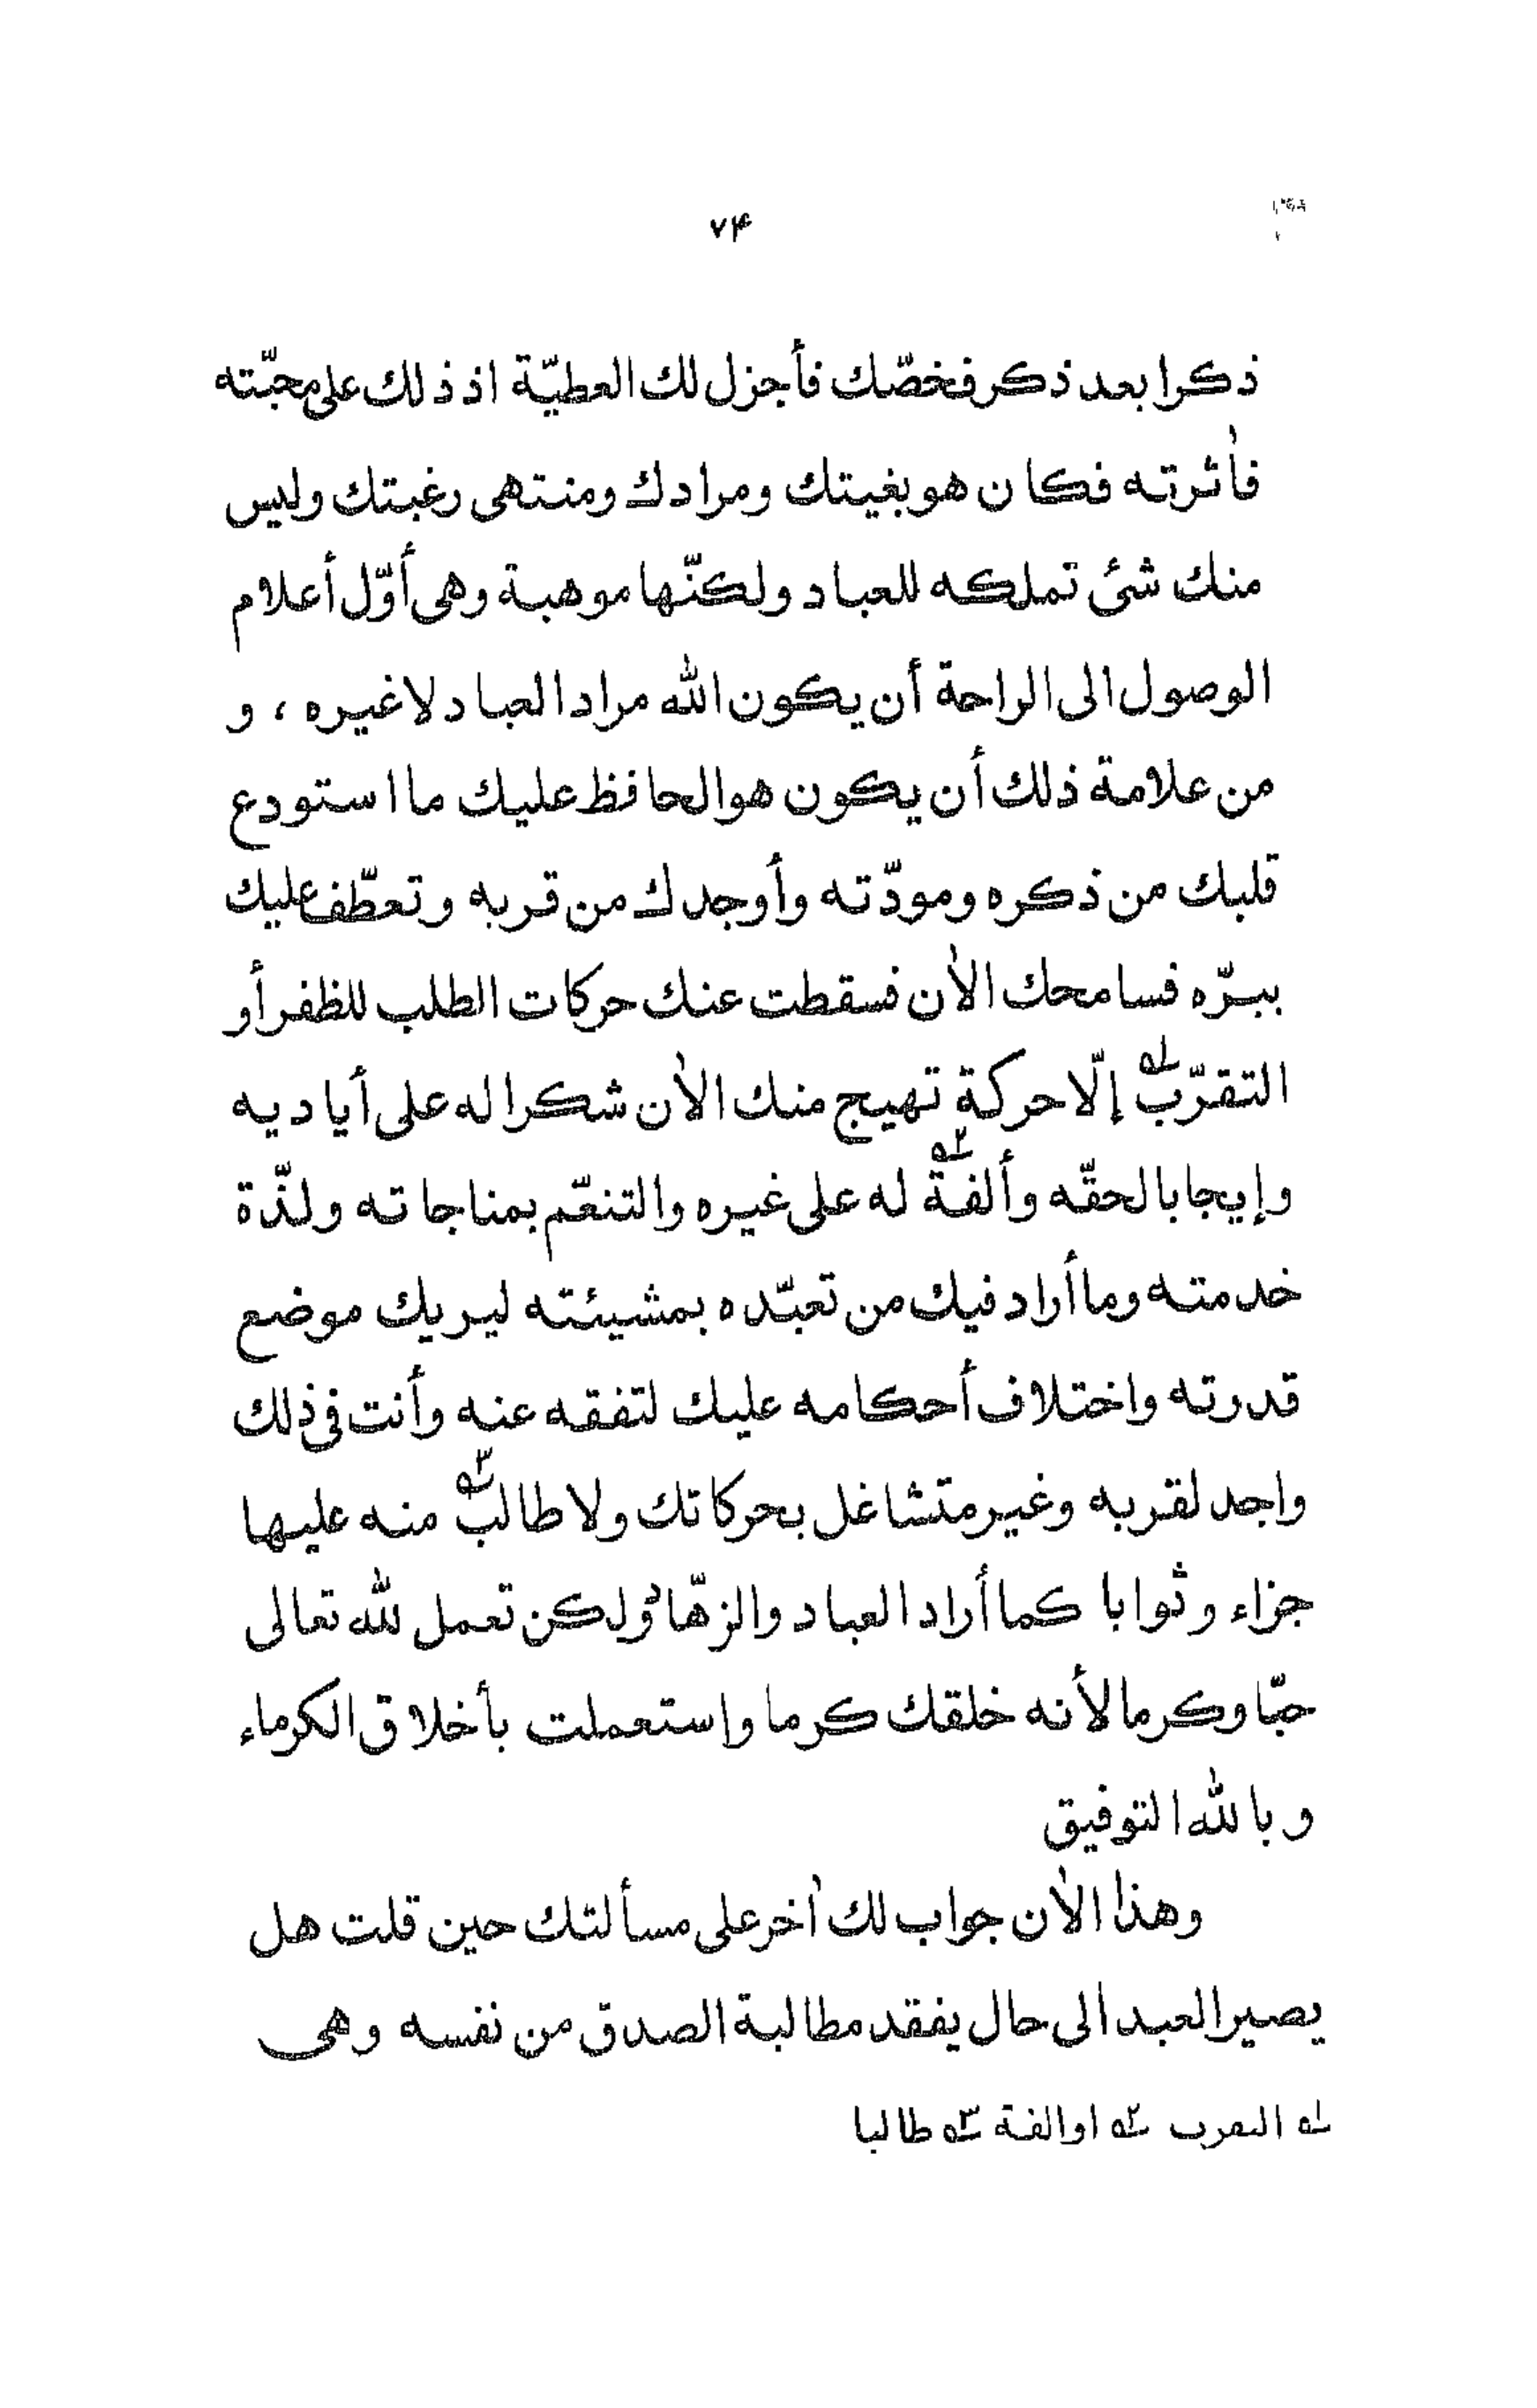 ٧۴
ذكرا بعد ذكر فخصّك فأجزل لك العطيّة اذ ذلك على محبّته
فاٰثرته فكان هو بغيتك ومرادك ومنتهى رغبتك وليس
منك شئ تملكه للعباد ولكنّها موهبة وهى أوّل أعلام
الوصول الى الراحة أن يكون الله مراد العباد لا غيره ، و
من علامة ذلك أن يكون هو الحافظ عليك ما استودع
قلبك من ذكره ومودّته وأوجدك من قربه وتعطّف عليك
ببرّه فسامحك الاٰن فسقطت عنك حركات الطلب للظفر أو
التقرّب ١ه إلّا حركة تهيج منك الاٰن شكرا له على أياديه
وإيجابا لحقّه وألفة ٢ه له على غيره والتنعّم بمناجاته ولذّة
خدمته وما أراد فيك من تعبّده بمشيئته ليريك موضع
قدرته واختلاف أحكامه عليك لتفقه عنه وأنت فى ذلك
واجد لقربه وغير متشاغل بحركاتك ولا طالب ٣ه منه عليها
جزاء وثوابا كما أراد العباد والزهّاد ولكن تعمل لله تعالى
حبّا وكرما لأنه خلقك كرما واستعملت بأخلاق الكرماء
وبالله التوفيق
وهذا الاٰن جواب لك اٰخر على مسألتك حين قلت هل
يصير العبد الى حال يفقد مطالبة الصدق من نفسه وهى
١ه المعرب ٢ه اوالفة ٣ه طالبا